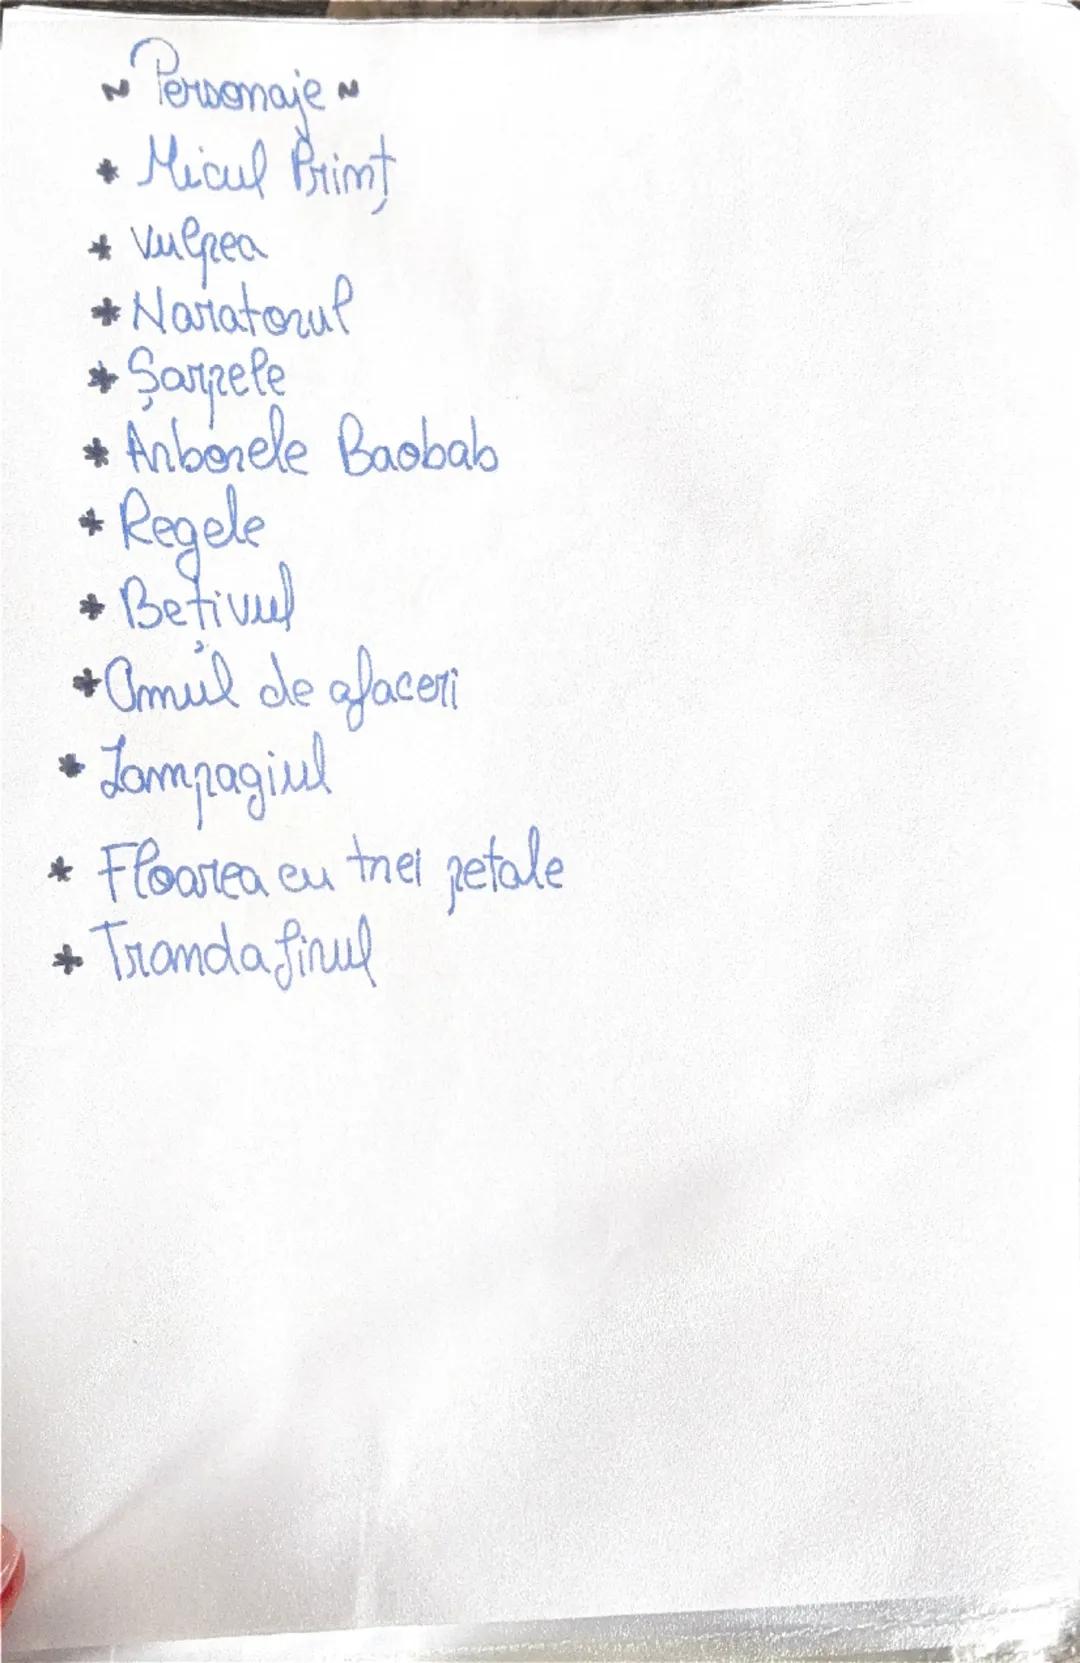 ~ Personaje ~
* Micul Prinț
* Vulpea
* Naratorul
* Șarpele
* Arborele Baobab
* Regele
* Bețivul
* Omul de afaceri
* Lampagiul
* Floarea cu trei petale
* Trandafirul